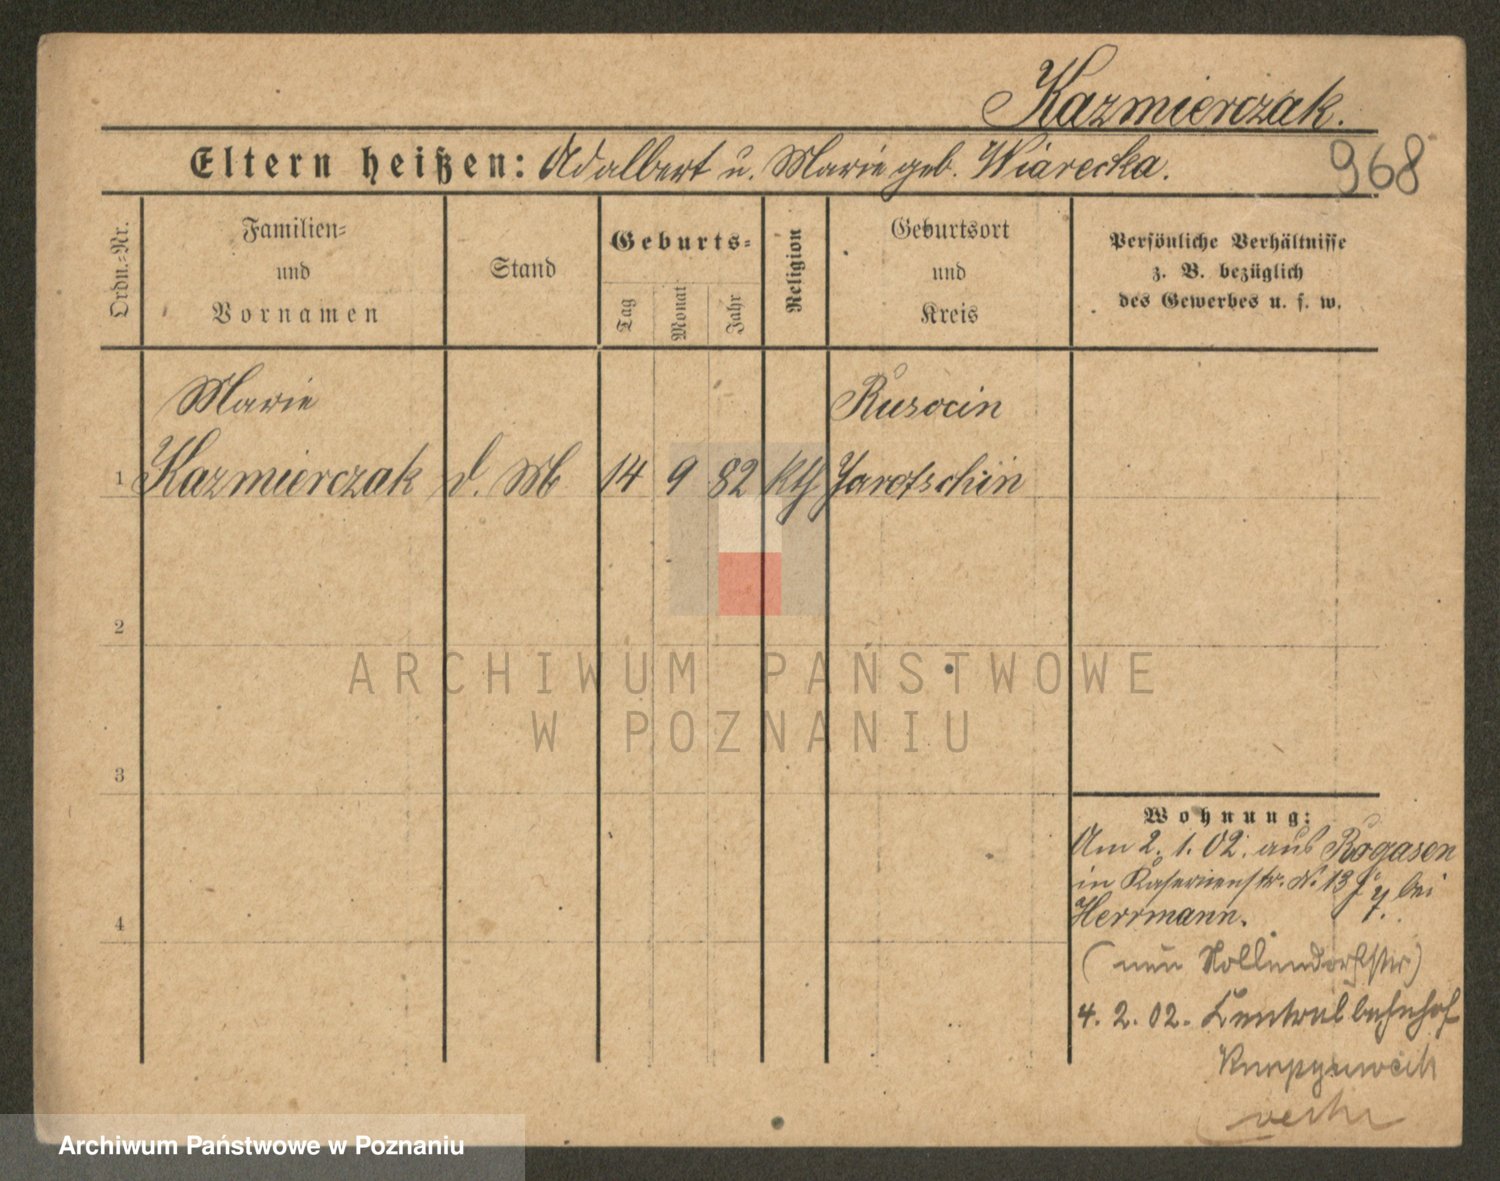 Kazmierczak.
968
Eltern heißen: Adalbert u. Marie geb. Wiarecka.
Ordn.-Nr.
Familien-
und
Vornamen
Stand
Geburts-
Tag
Monat
Jahr
Religion
Geburtsort
und
Kreis
Persönliche Verhältnisse
z. B. bezüglich
des Gewerbes u. s. w.
Marie
Rusocin
1 Kazmierczak d. M 14 9 82 kth Jarotschin
2
3
4
Wohnung:
Am 2. 1. 02. aus Rogasen
in Kasernenstr. N. 13 bei
Herrmann.
(nun Nollendorfstr)
4. 2. 02. Centralbahnhof
ARCHIWUM PAŃSTWOWE
W POZNANIU
Archiwum Państwowe w Poznaniu